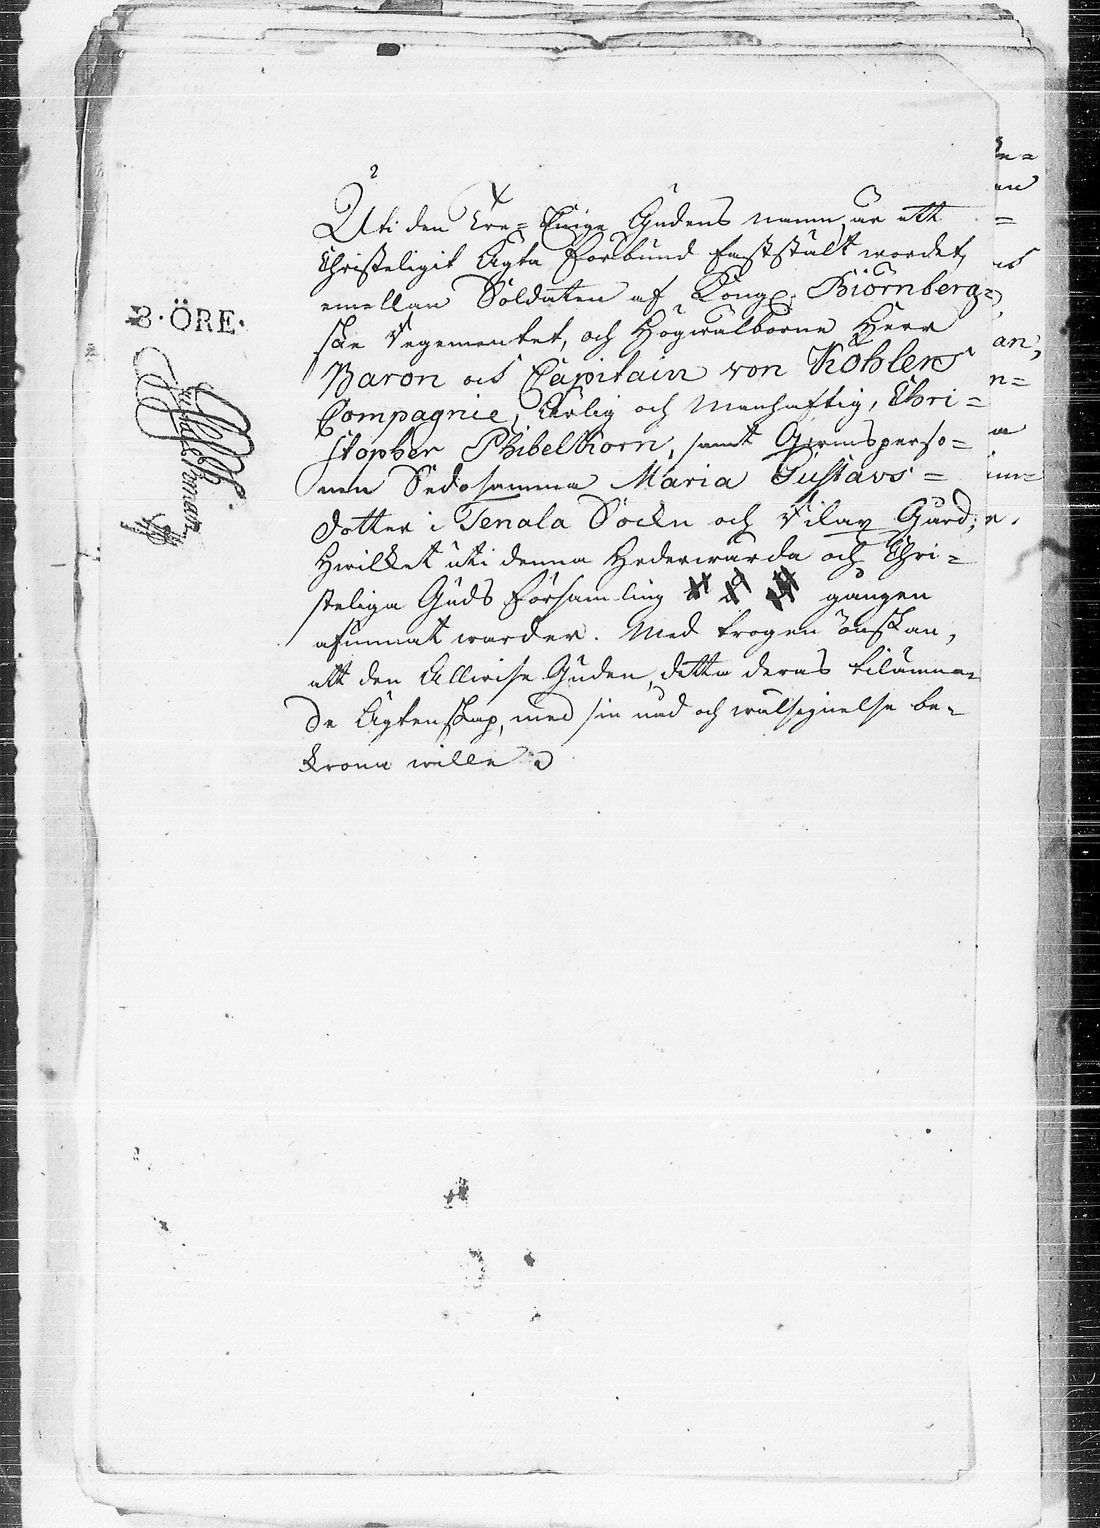 Uti den Tre-Eniga Gudens namn, är ett
Christeligit Ägta förbund fastsält wordet,
emellan Soldaten af Kongl. Biörnberg=
ska Regementet, och Högwälborne Herr
Baron och Capitain von Köhlers
Compagnie, Ärlig och Manhaftig, Chri=
stopher Phibelkorn, samt Qwinsperso=
nen Sedosamma Maria Gustavs=
dotter i Tenala Sockn och Gård;
Hwilket uti denna Hederwärda och Chri=
steliga Guds församling gången
afkunnat warder. Med trogen önskan,
att den Allwise Guden, detta deras tilämna=
de Ägtenskap, med sin nåd och wälsignelse be=
kröna wille
3·ÖRE·